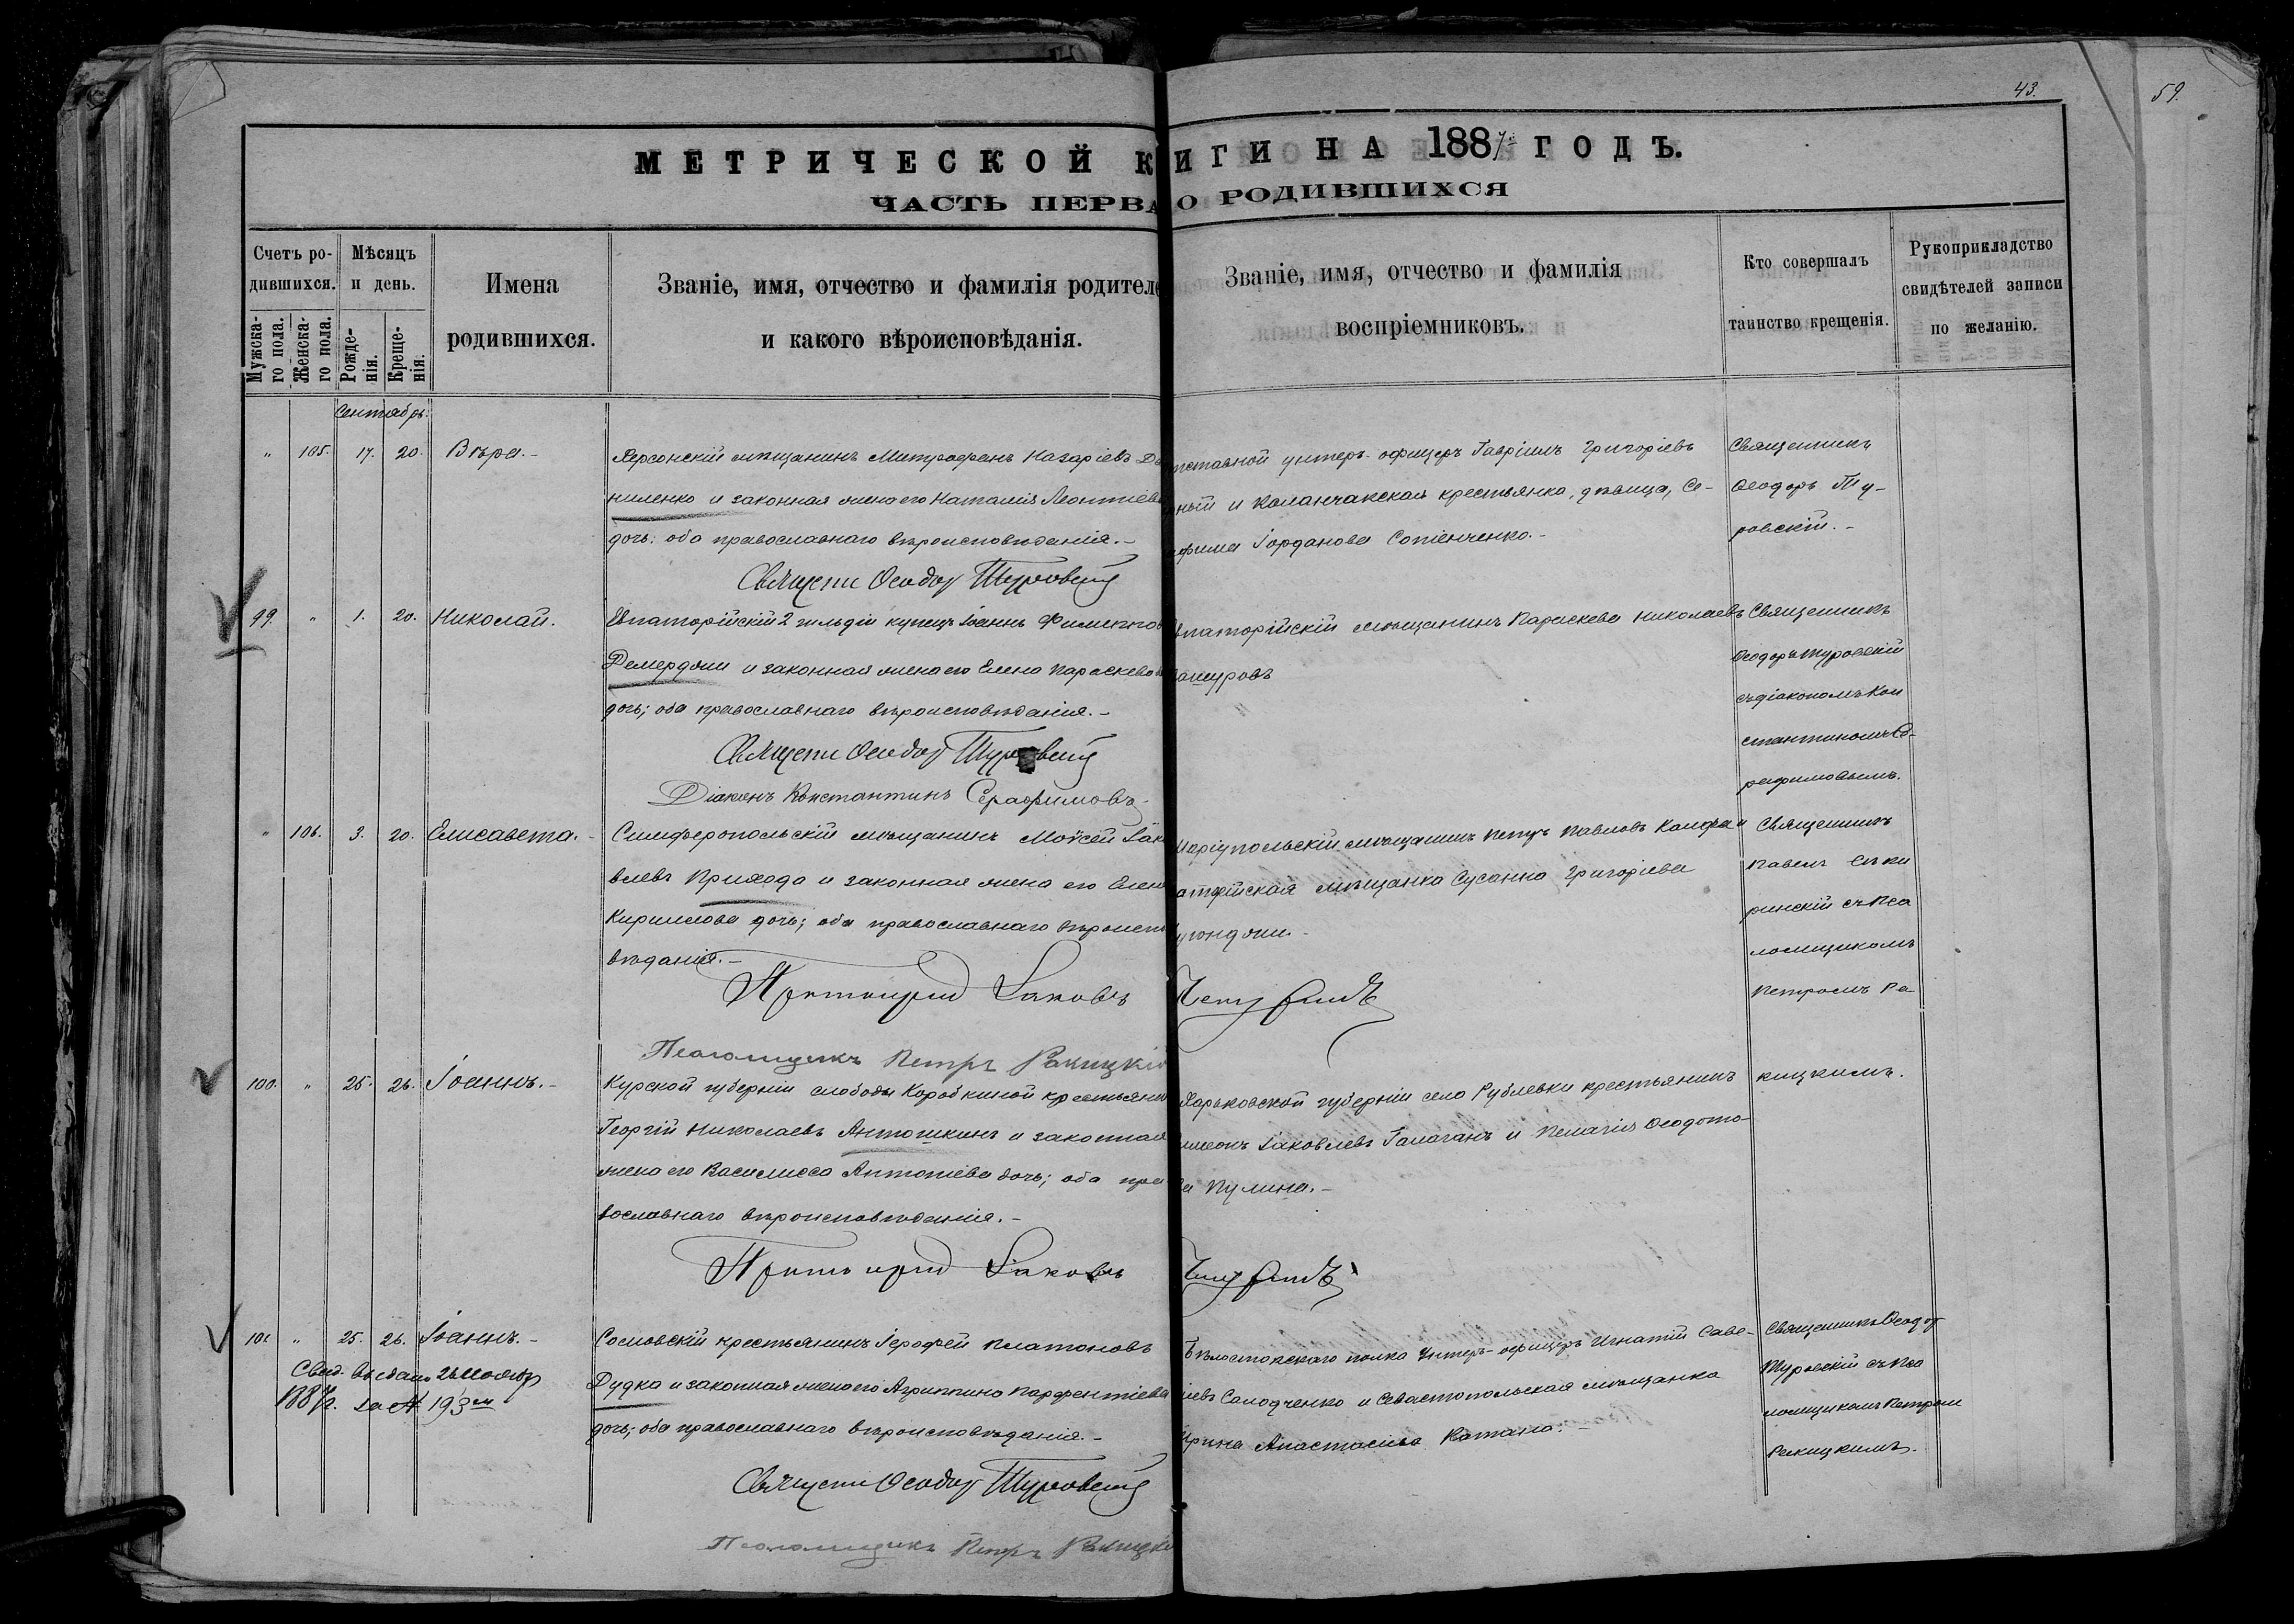 43.
59.
МЕТРИЧЕСКОЙ К ИГИ НА 1887 ГОДЪ.
ЧАСТЬ ПЕРВА О РОДИВШИХСЯ
Счетъ ро-
дившихся.
Мужска-
го пола.
Женска-
го пола.
Мѣсяцъ
и день.
Рожде-
нія.
Креще-
нія.
Имена
родившихся.
Званіе, имя, отчество и фамилія родителе
и какого вѣроисповѣданія.
Званіе, имя, отчество и фамилія
воспріемниковъ.
Кто совершалъ
таинство крещенія.
Рукоприкладство
свидѣтелей записи
по желанію.
Сентябрь.
" 105. 17. 20. Вѣра.-
Херсонскій мѣщанинъ Митрофанъ Назаріевъ Да
ниленко и законная жена его Наталія Леонтіева
дочь; оба православнаго вѣроисповѣданія.-
Священ Ѳеодор Туровскій
тставной унтеръ-офицеръ Гавріилъ Григоріевъ
ный и Каланчакская крестьянка, дѣвица, Се-
фима Іорданова Сотенченко.-
Священникъ
Ѳеодоръ Ту-
ровскій.-
99. " 1. 20. Николай.
Евпаторійскій 2 гильдіи купецъ Іоаннъ Филиппов
Демерджи и законная жена его Елена Параскевов
дочь; оба православнаго вѣроисповѣданія.-
Священ Ѳеодор Туровскій
Діаконъ Константинъ Серафимовъ
впаторійскій мѣщанинъ Параскева Николаевъ
шуровъ
Священникъ
Ѳеодоръ Туровскій
съ діакономъ Кон
стантиномъ Се-
рафимовымъ.
" 106. 3. 20. Елисавета.-
Симферопольскій мѣщанинъ Моѵсей Іако
влевъ Прихода и законная жена его Елена
Кириллова дочь; оба православнаго вѣроиспо
вѣданія.-
Протоіерей Іаковъ Чепуринъ
Псаломщикъ Петръ Ракицкій
аріупольскій мѣщанинъ Петръ Павловъ Калфа и
аторійская мѣщанка Сусанна Григоріева
Священникъ
Павелъ Сѣки
ринскій съ Пса
ломщикомъ
Петромъ Ра-
кицкимъ.
100. " 25. 26. Іоаннъ.-
Курской губерніи слободы Коробкиной крестьянин
Георгій Николаевъ Антошкинъ и законная
жена его Василисса Антоніева дочь; оба пра
вославнаго вѣроисповѣданія.-
Протоіерей Іаковъ Чепуринъ
Харьковской губерніи село Рублевки крестьянинъ
имеонъ Іаковлевъ Галаганъ и Пелагія Ѳеодото-
ва Пулина.-
101. " 25. 26. Іоаннъ.-
Свид. выдано 26 Ноября
1887 г. за № 193 м
Сословскій крестьянинъ Іерофей Платоновъ
Дудка и законная жена его Агриппина Парфентіева
дочь; оба православнаго вѣроисповѣданія.-
Священ Ѳеодор Туровскій
Псаломщикъ Петръ Ракицкі
Бѣлостокскаго полка Унтеръ-офицеръ Игнатій Саве-
іевъ Солодченко и Севастопольская мѣщанка
Ирина Анастасіева Катана.-
Священникъ Ѳеодор
Туровскій съ Пса
ломщикомъ Петром
Ракицкимъ.